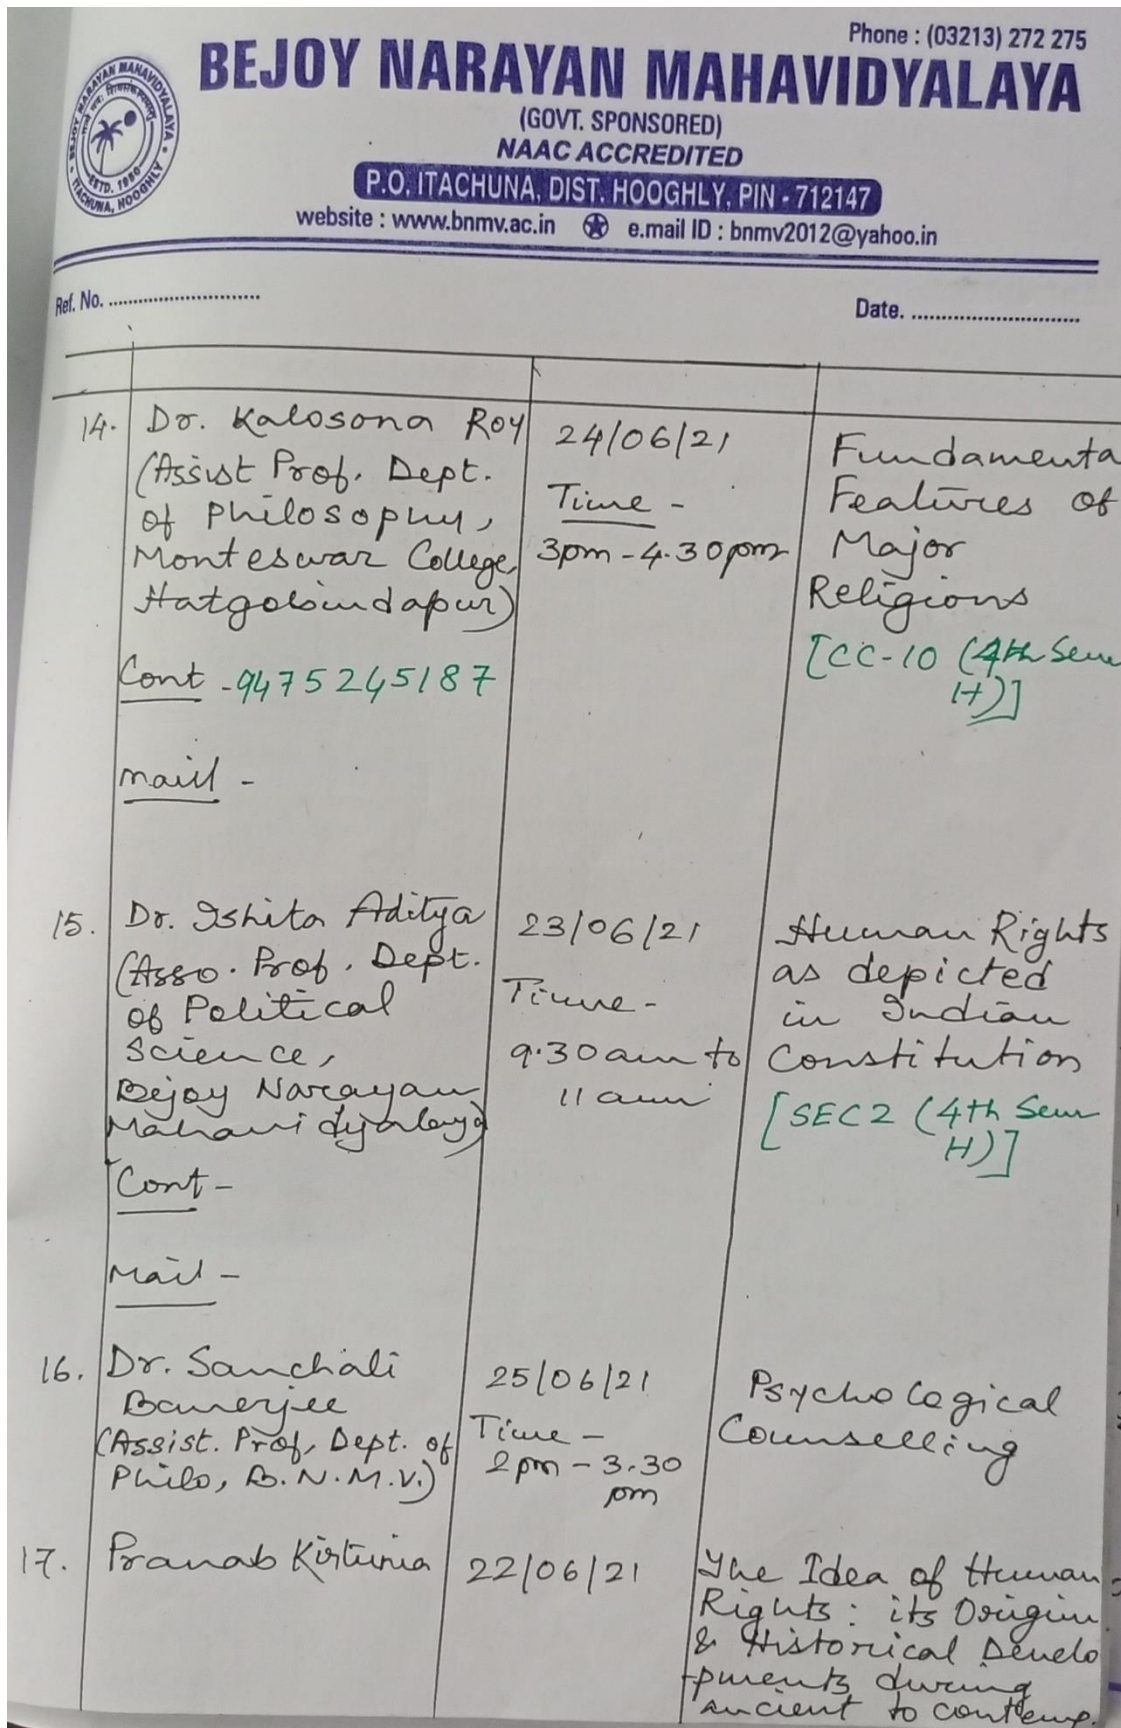 Phone : (03213) 272 275
BEJOY NARAYAN MAHAVIDYALAYA
(GOVT. SPONSORED)
NAAC ACCREDITED
P.O. ITACHUNA, DIST. HOOGHLY, PIN - 712147
website : www.bnmv.ac.in e.mail ID : bnmv2012@yahoo.in
BEJOY NARAYAN MAHAVIDYALAYA
ESTD. 1950
ITACHUNA, HOOGHLY
Ref. No. ............................
Date. ............................
14. Dr. Kalosona Roy
(Assist Prof. Dept.
of Philosophy,
Monteswar College,
Hatgobindapur)
Cont - 9475245187
Mail -
24/06/21
Time -
3pm - 4.30pm
Fundamenta
Features of
Major
Religions
[CC-10 (4th Sem
H)]
15. Dr. Ishita Aditya
(Asso. Prof. Dept.
of Political
Science,
Bejoy Narayan
Mahavidyalaya)
Cont -
Mail -
23/06/21
Time -
9.30am to
11am
Human Rights
as depicted
in Indian
Constitution
[SEC2 (4th Sem
H)]
16. Dr. Sanchali
Banerjee
(Assist. Prof, Dept. of
Philo, B.N.M.V.)
25/06/21
Time -
2pm - 3.30
pm
Psychological
Counselling
17. Pranab Kirtunia
22/06/21
The Idea of Human
Rights: its Origin
& Historical Develo
pments during
ancient to contemp.